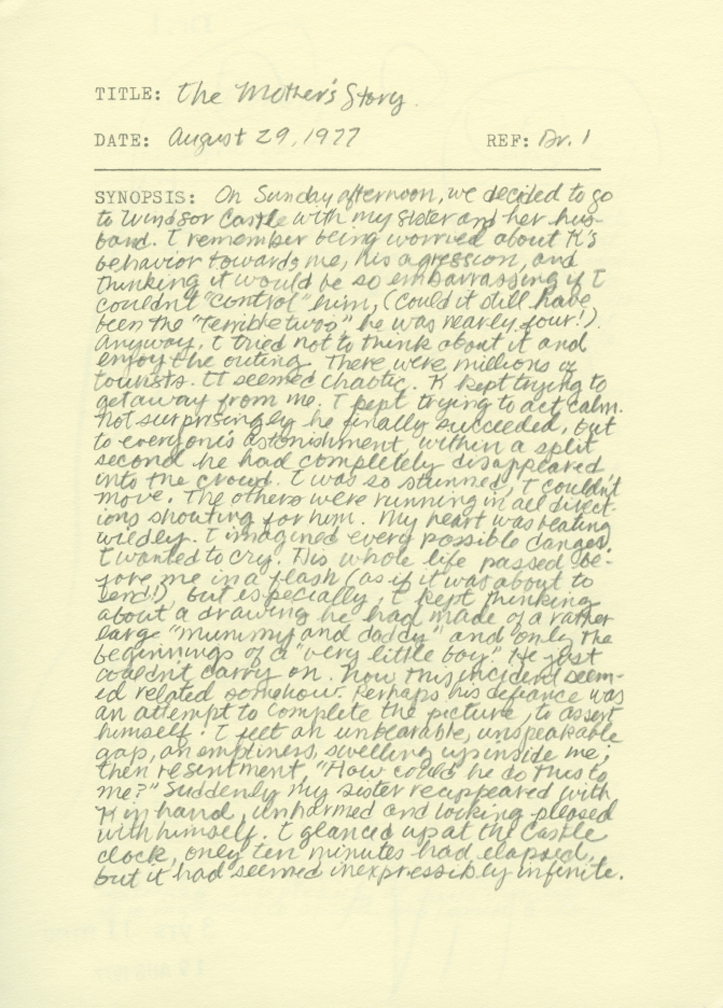 TITLE: The Mother's Story.
DATE: August 29, 1977 REF: Dr. 1
SYNOPSIS: On Sunday afternoon, we decided to go
to Windsor Castle with my sister and her hus-
band. I remember being worried about K's
behavior towards me, his agression, and
thinking it would be so embarrassing if I
couldn't "control" him, (could it still have
been the "terrible twos," he was nearly four!).
Anyway, I tried not to think about it and
enjoy the outing. There were millions of
tourists. It seemed chaotic. K kept trying to
get away from me. I kept trying to act calm.
Not surprisingly he finally succeeded, but
to everyone's astonishment, within a split
second he had completely disappeared
into the crowd. I was so stunned, I couldn't
move. The others were running in all direct-
ions shouting for him. My heart was beating
wildly. I imagined every possible danger.
I wanted to cry. His whole life passed be-
fore me in a flash (as if it was about to
end!), but especially, I kept thinking
about a drawing he had made of a rather
large "mummy and daddy" and only the
beginnings of a "very little boy." He just
couldn't carry on. Now this incident seem-
ed related somehow. Perhaps his defiance was
an attempt to complete the picture, to assert
himself! I felt an unbearable, unspeakable
gap, an emptiness, swelling up inside me;
then resentment, "How could he do this to
me?" Suddenly my sister reappeared with
K in hand, unharmed and looking pleased
with himself. I glanced up at the castle
clock, only ten minutes had elapsed,
but it had seemed inexpressibly infinite.